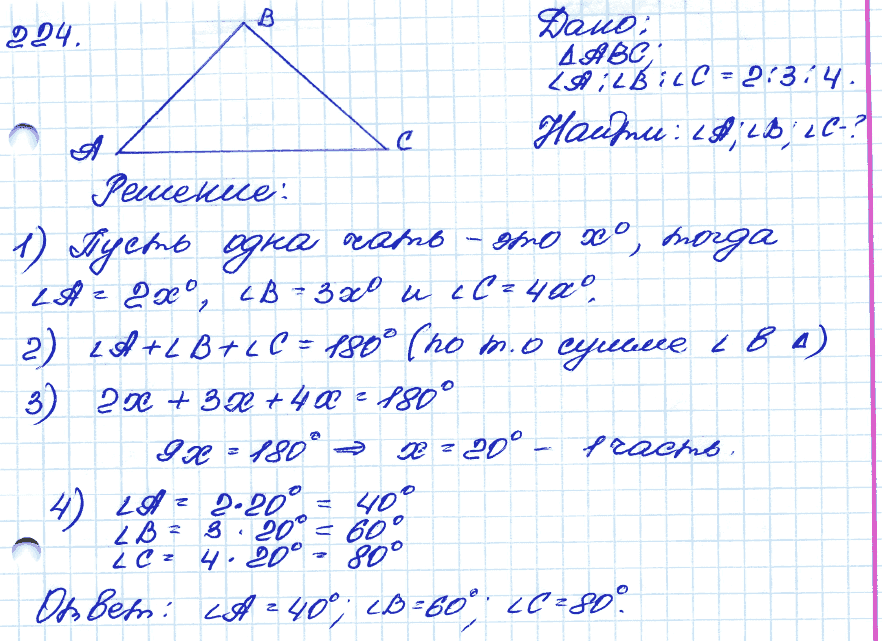 224.
B
A
C
Дано:
△ABC;
∠A:∠B:∠C = 2:3:4.
Найти: ∠A; ∠B; ∠C-?
Решение:
1) Пусть одна чать - это x°, тогда
∠A = 2x°, ∠B = 3x° и ∠C = 4x°.
2) ∠A + ∠B + ∠C = 180° (по т. о сумме ∠ в △)
3) 2x + 3x + 4x = 180°
9x = 180° ⇒ x = 20° - 1 часть.
4) ∠A = 2 · 20° = 40°
∠B = 3 · 20° = 60°
∠C = 4 · 20° = 80°
Ответ: ∠A = 40°; ∠B = 60°; ∠C = 80°.